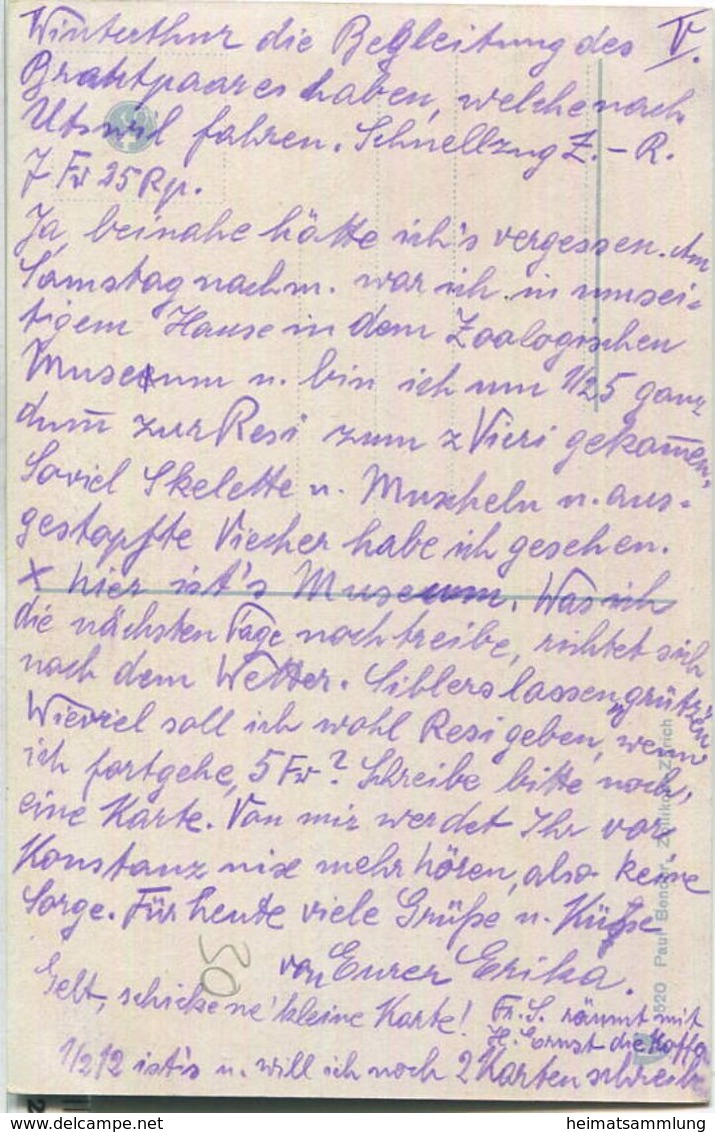 Winterthur die Begleitung des V.
Brautpaares haben, welche nach
Utswil fahren. Schnellzug Z. - R.
7 Fr 25 Rp.
Ja, beinahe hätte ich's vergessen. Am
Samstag nachm. war ich in umsei-
tigem Hause in dem Zoologischen
Museum u. bin ich um 1/2 5 ganz
dum̅ zur Resi zum z'Vieri gekom̅en,
Soviel Skelette u. Muscheln u. aus-
gestopfte Viecher habe ich gesehen.
x hier ist's Museum. Was ich
die nächsten Tage noch treibe, richtet sich
nach dem Wetter. Siblers lassen grützen
Wieviel soll ich wohl Resi geben, wenn
ich fortgehe, 5 Fr? Schreibe bitte noch,
eine Karte. Von mir werdet Ihr vor
Konstanz nix mehr hören, also keine
Sorge. Für heute viele Grüße u. Küße
von Eurer Erika.
30
Gelt, schicke ne' kleine Karte!
Fr. S. räumt mit
H. Ernst die Koffer
1/2 12 ist's u. will ich noch 2 Karten schreiben
3520 Paul Bender, Zollikon-Zürich
heimatsammlung